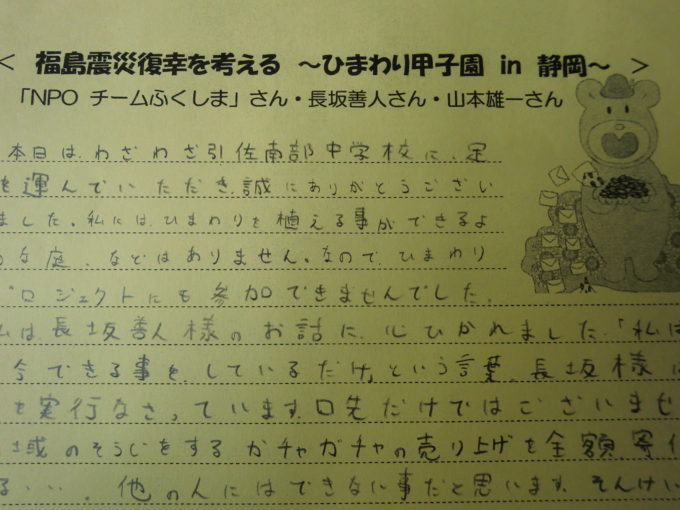 < 福島震災復幸を考える ～ひまわり甲子園 in 静岡～ >
「NPO チームふくしま」さん・長坂善人さん・山本雄一さん
本日は、わざわざ引佐南部中学校に、足
を運んでいただき、誠にありがとうござい
ました。私には、ひまわりを植える事ができるよ
うな庭、などはありません。なので、ひまわり
プロジェクトにも参加できませんでした。
私は長坂善人様のお話に、心ひかれました。「私は
今できる事を、しているだけ」という言葉、長坂様は
を実行なさっています。口先だけではございませ
域のそうじをする、ガチャガチャの売り上げを全額寄付
る・・・。他の人にはできない事だと思います。そんけい